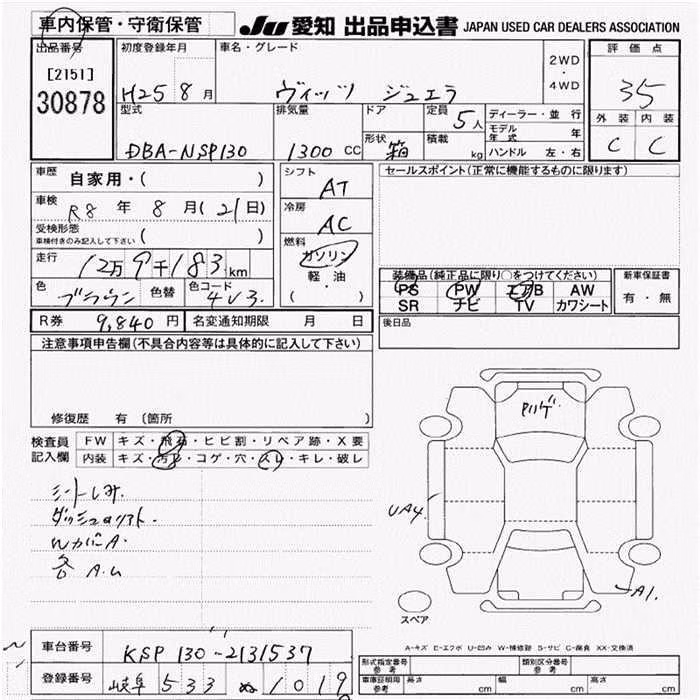 車内保管・守衛保管
JU 愛知 出品申込書 JAPAN USED CAR DEALERS ASSOCIATION
出品番号 初度登録年月 車名・グレード 2WD・4WD 評価点
[2151]
30878
H25 8月 ヴィッツ ジュエラ 35
型式 排気量 ドア 定員 5人 ディーラー・並行 外装 内装
モデル年式 年
DBA-NSP130 1300 CC 形状 箱 積載 kg ハンドル 左・右 C C
車歴 自家用・( ) シフト AT セールスポイント(正常に機能するものに限ります)
車検 R8 年 8 月(21日) 冷房 AC
受検形態
車検付きのみ記入して下さい ( ) 燃料 ガソリン
走行 12万9千183km 軽・油 装備品(純正品に限り○をつけてください) 新車保証書
PS PW エアB AW 有・無
色 ブラウン 色替 色コード 4V3. ( ・ ) SR ナビ TV カワシート
R券 9,840円 名変通知期限 月 日 後日品
注意事項申告欄(不具合内容等は具体的に記入して下さい)
修復歴 有 (箇所 )
検査員 FW キズ・飛石・ヒビ割・リペア跡・X要
記入欄 内装 キズ・汚レ・コゲ・穴・スレ・キレ・破レ
シートしみ.
WカバA.
各 A.U
UA4.
A1.
スペア
A-キズ E-エクボ U-凹み W-補修跡 S-サビ C-腐食 XX-交換済
車台番号 KSP 130-2131537
登録番号 岐阜 533 ぬ 1019
形式指定番号 参考 類別区分番号 参考
車庫証明用 参考 長さ cm 幅 cm 高さ cm